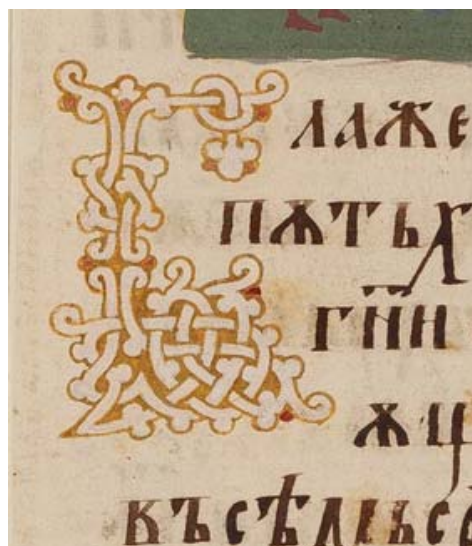 Блаже
пѫтьх
гн҃и
ѫщ
въсѣмьс